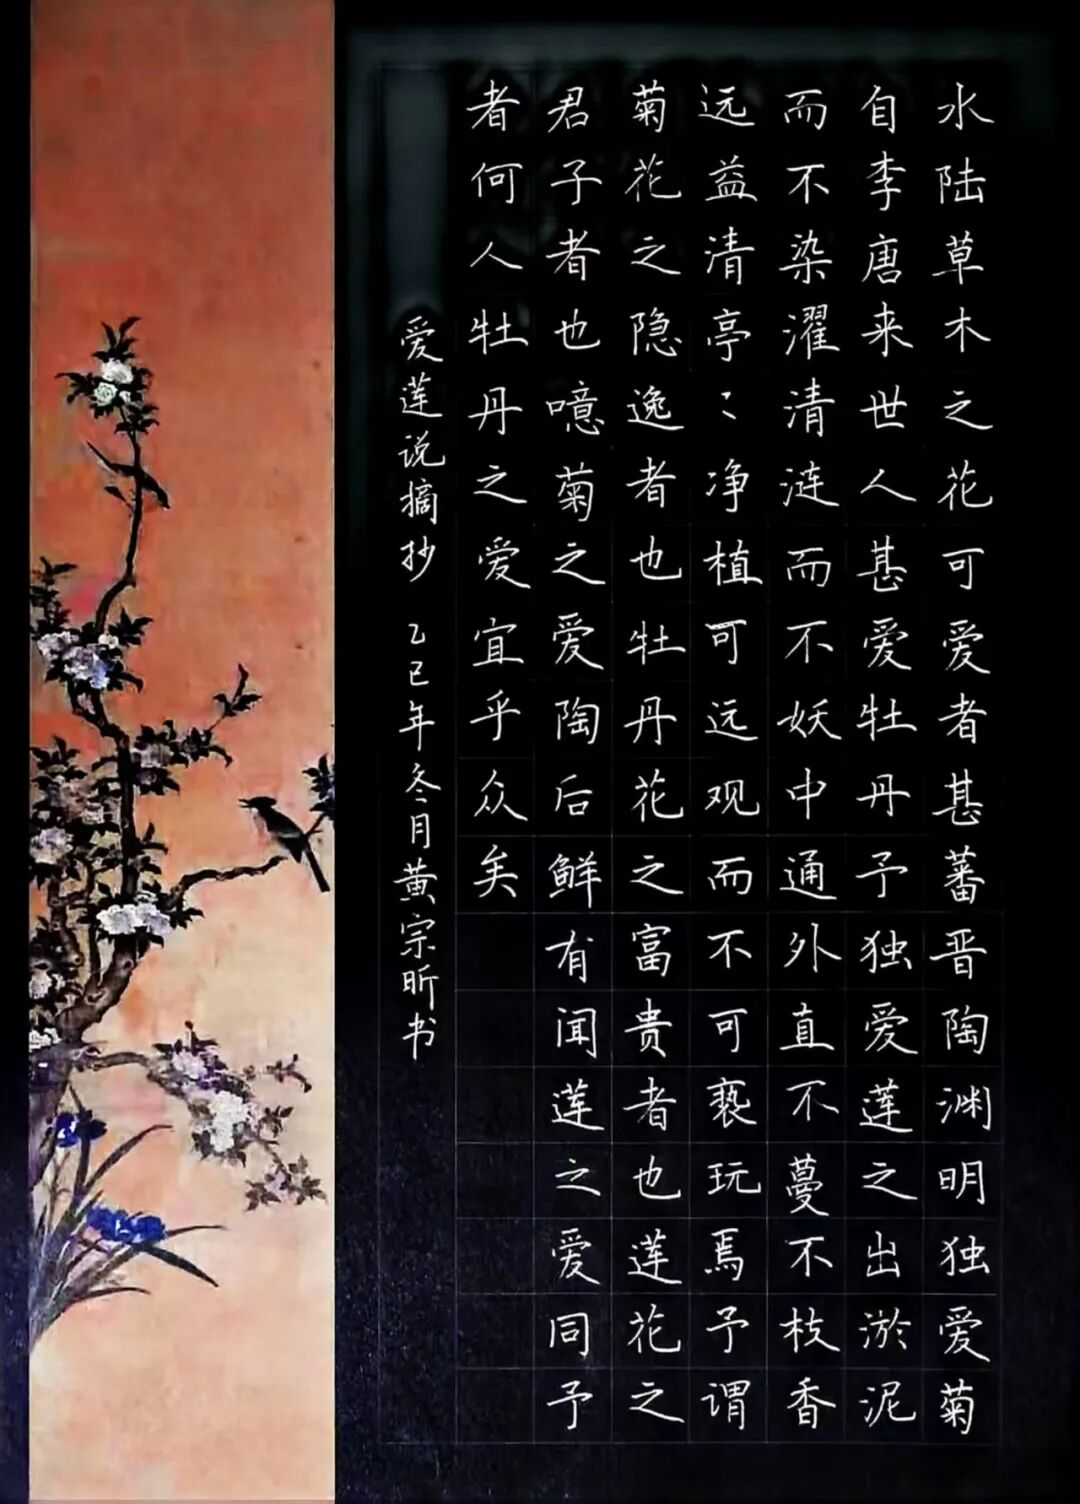 水陆草木之花可爱者甚蕃晋陶渊明独爱菊
自李唐来世人甚爱牡丹予独爱莲之出淤泥
而不染濯清涟而不妖中通外直不蔓不枝香
远益清亭⺀净植可远观而不可亵玩焉予谓
菊花之隐逸者也牡丹花之富贵者也莲花之
君子者也噫菊之爱陶后鲜有闻莲之爱同予
者何人牡丹之爱宜乎众矣
爱莲说摘抄 乙巳年冬月黄宗昕书